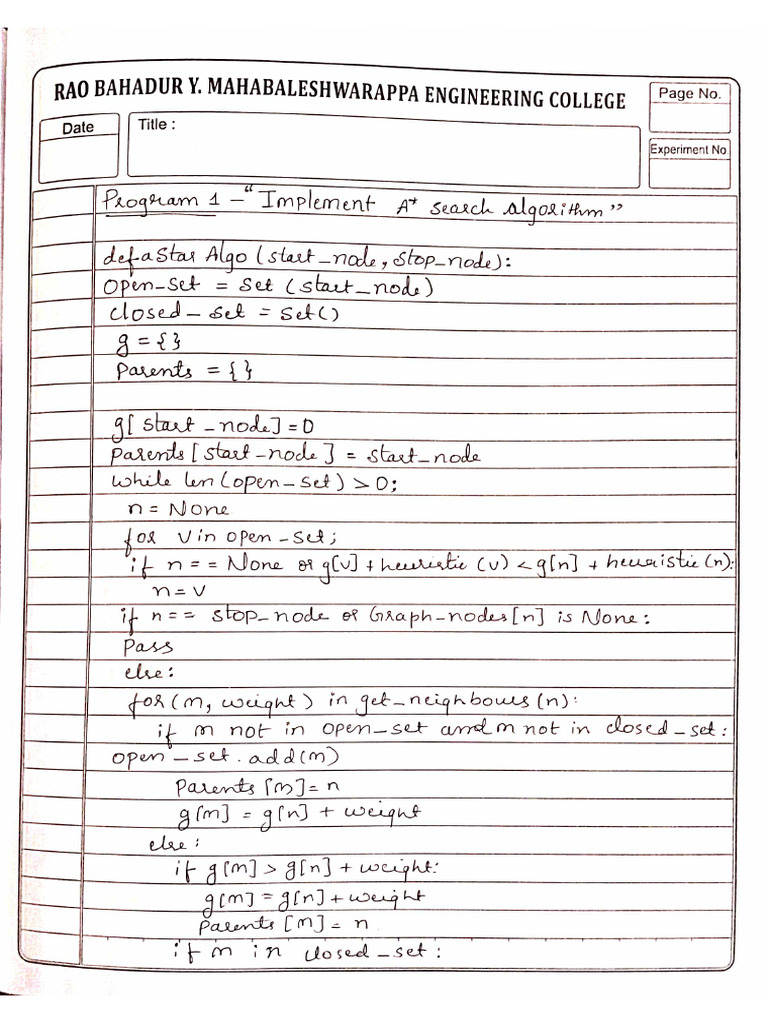 RAO BAHADUR Y. MAHABALESHWARAPPA ENGINEERING COLLEGE
Page No.
Date
Title :
Experiment No
Program 1 - "Implement A* search Algorithm"
def aStar Algo (start_node, stop_node):
Open_Set = Set (start_node)
Closed_ set = Set()
g = {}
Parents = {}
g[ start _node] = 0
parents [start_node ] = start_node
while len (open_set) > 0;
n = None
for v in open_set;
if n = = None or g[v] + heuristic (v) < g[n] + heuristic (n):
n = v
if n = = stop_node or Graph_nodes [n] is None :
Pass
else :
for (m, weight ) in get_neighbours (n):
if m not in open_set and m not in closed_set :
open _ set . add (m)
Parents [m] = n
g[m] = g[n] + weight
else :
if g[m] > g[n] + weight:
g[m] = g[n] + weight
Parents [m] = n
if m in closed_set :